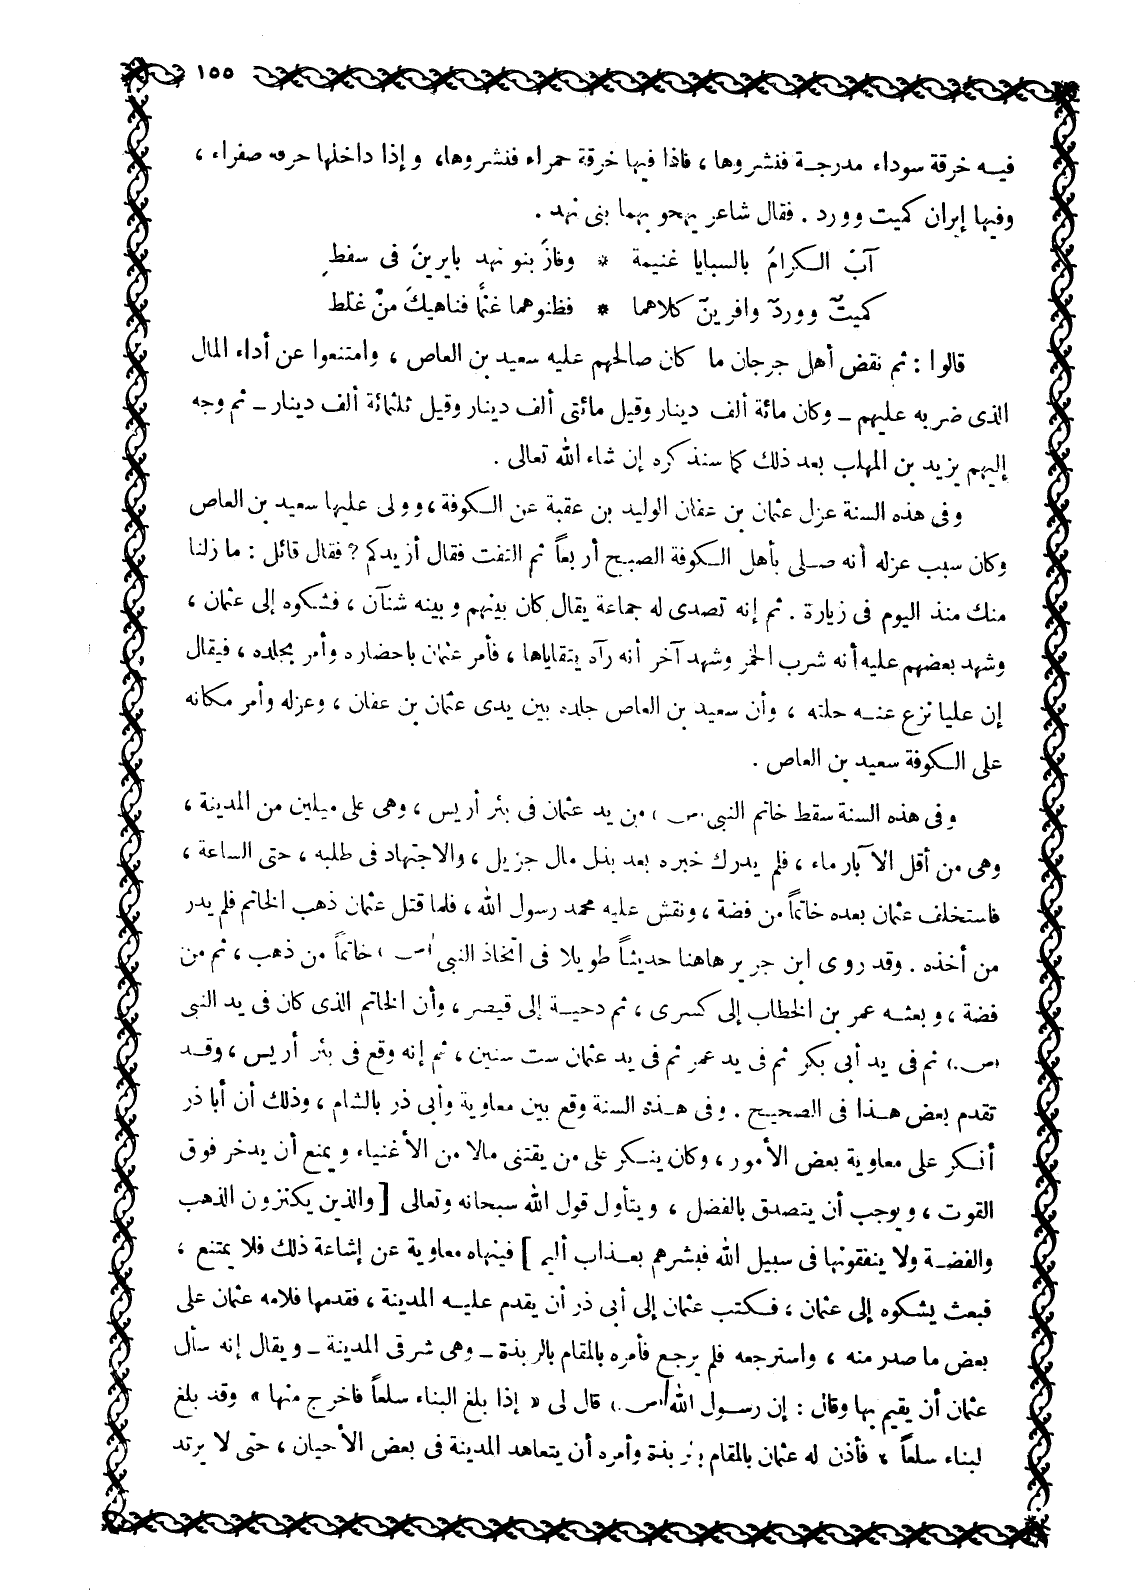 ١٥٥
فيـه خرقة سوداء مدرجـة فنشروها ، فاذا فيها خرقة حمراء فنشروها، وإذا داخلها حرقه صفراء ،
وفيها إيران كميت وورد . فقال شاعر يهجو بهما بنى نهد .
آبَ الـكرامُ بالسبايا غنيمة * وفازَ بنو نهد بايرينَ فى سفطِ
كميتٌ ووردٌ وافرينَ كلاهما * فظنوهما غنًما فناهيكَ منْ غلط
قالوا : ثم نقض أهل جرجان ما كان صالحهم عليه سعيد بن العاص ، وامتنعوا عن أداء المال
الذى ضربه عليهم ــ وكان مائة ألف دينار وقيل مائتى ألف دينار وقيل ثلثمائة ألف دينار ــ ثم وجه
إليهم يزيد بن المهلب بعد ذلك كما سنذكره إن شاء الله تعالى .
وفى هذه السنة عزل عثمان بن عفان الوليد بن عقبة عن الـكوفة ، وولى عليها سعيد بن العاص
وكان سبب عزله أنه صـلى بأهل الـكوفة الصبح أربعاً ثم التفت فقال أزيدكم ؟ فقال قائل : ما زلنا
منك منذ اليوم فى زيارة . ثم إنه تصدى له جماعة يقال كان بينهم وبينه شنآن ، فشكوه إلى عثمان ،
وشهد بعضهم عليه أنه شرب الخمر وشهد آخر أنه رآه يتقاياها ، فأمر عثمان باحضاره وأمر بجلده ، فيقال
إن عليا نزع عنـه حلته ، وأن سعيد بن العاص جلده بين يدى عثمان بن عفان ، وعزله وأمر مكانه
على الـكوفة سعيد بن العاص .
وفى هذه السنة سقط خاتم النبى (ص) من يد عثمان فى بئر أريس ، وهى على ميلين من المدينة ،
وهى من أقل الآبار ماء ، فلم يدرك خبره بعد بذل مال جزيل ، والاجتهاد فى طلبه ، حتى الساعة ،
فاستخلف عثمان بعده خاتماً من فضة ، ونقش عليه محمد رسول الله ، فلما قتل عثمان ذهب الخاتم فلم يدر
من أخذه . وقد روى ابن جرير هاهنا حديثاً طويلا فى اتخاذ النبى (ص) خاتماً من ذهب ، ثم من
فضة ، وبعثـه عمر بن الخطاب إلى كسرى ، ثم دحيـة إلى قيصر ، وأن الخاتم الذى كان فى يد النبى
(ص) ثم فى يد أبى بكر ثم فى يد عمر ثم فى يد عثمان ست سنين ، ثم إنه وقع فى بئر أريس ، وقـد
تقدم بعض هـذا فى الصحيح . وفى هـذه السنة وقع بين معاوية وأبى ذر بالشام ، وذلك أن أبا ذر
أنـكر على معاوية بعض الأمور ، وكان ينـكر على من يقتنى مالا من الأغنياء ويمنع أن يدخر فوق
القوت ، ويوجب أن يتصدق بالفضل ، ويتأول قول الله سبحانه وتعالى [ والذين يكنزون الذهب
والفضـة ولا ينفقونها فى سبيل الله فبشرهم بعـذاب أليم ] فينهاه معاوية عن إشاعة ذلك فلا يمتنع ،
فبعث يشكوه إلى عثمان ، فـكتب عثمان إلى أبى ذر أن يقدم عليـه المدينة ، فقدمها فلامه عثمان على
بعض ما صدر منه ، واسترجعه فلم يرجع فأمره بالمقام بالربذة ــ وهى شرقى المدينة ــ ويقال إنه سأل
عثمان أن يقيم بها وقال : إن رسـول الله (ص) قال لى « إذا بلغ البناء سلعاً فاخرج منها » وقد بلغ
لبناء سلعاً ، فأذن له عثمان بالمقام بالربذة وأمره أن يتعاهد المدينة فى بعض الأحيان ، حتى لا يرتد